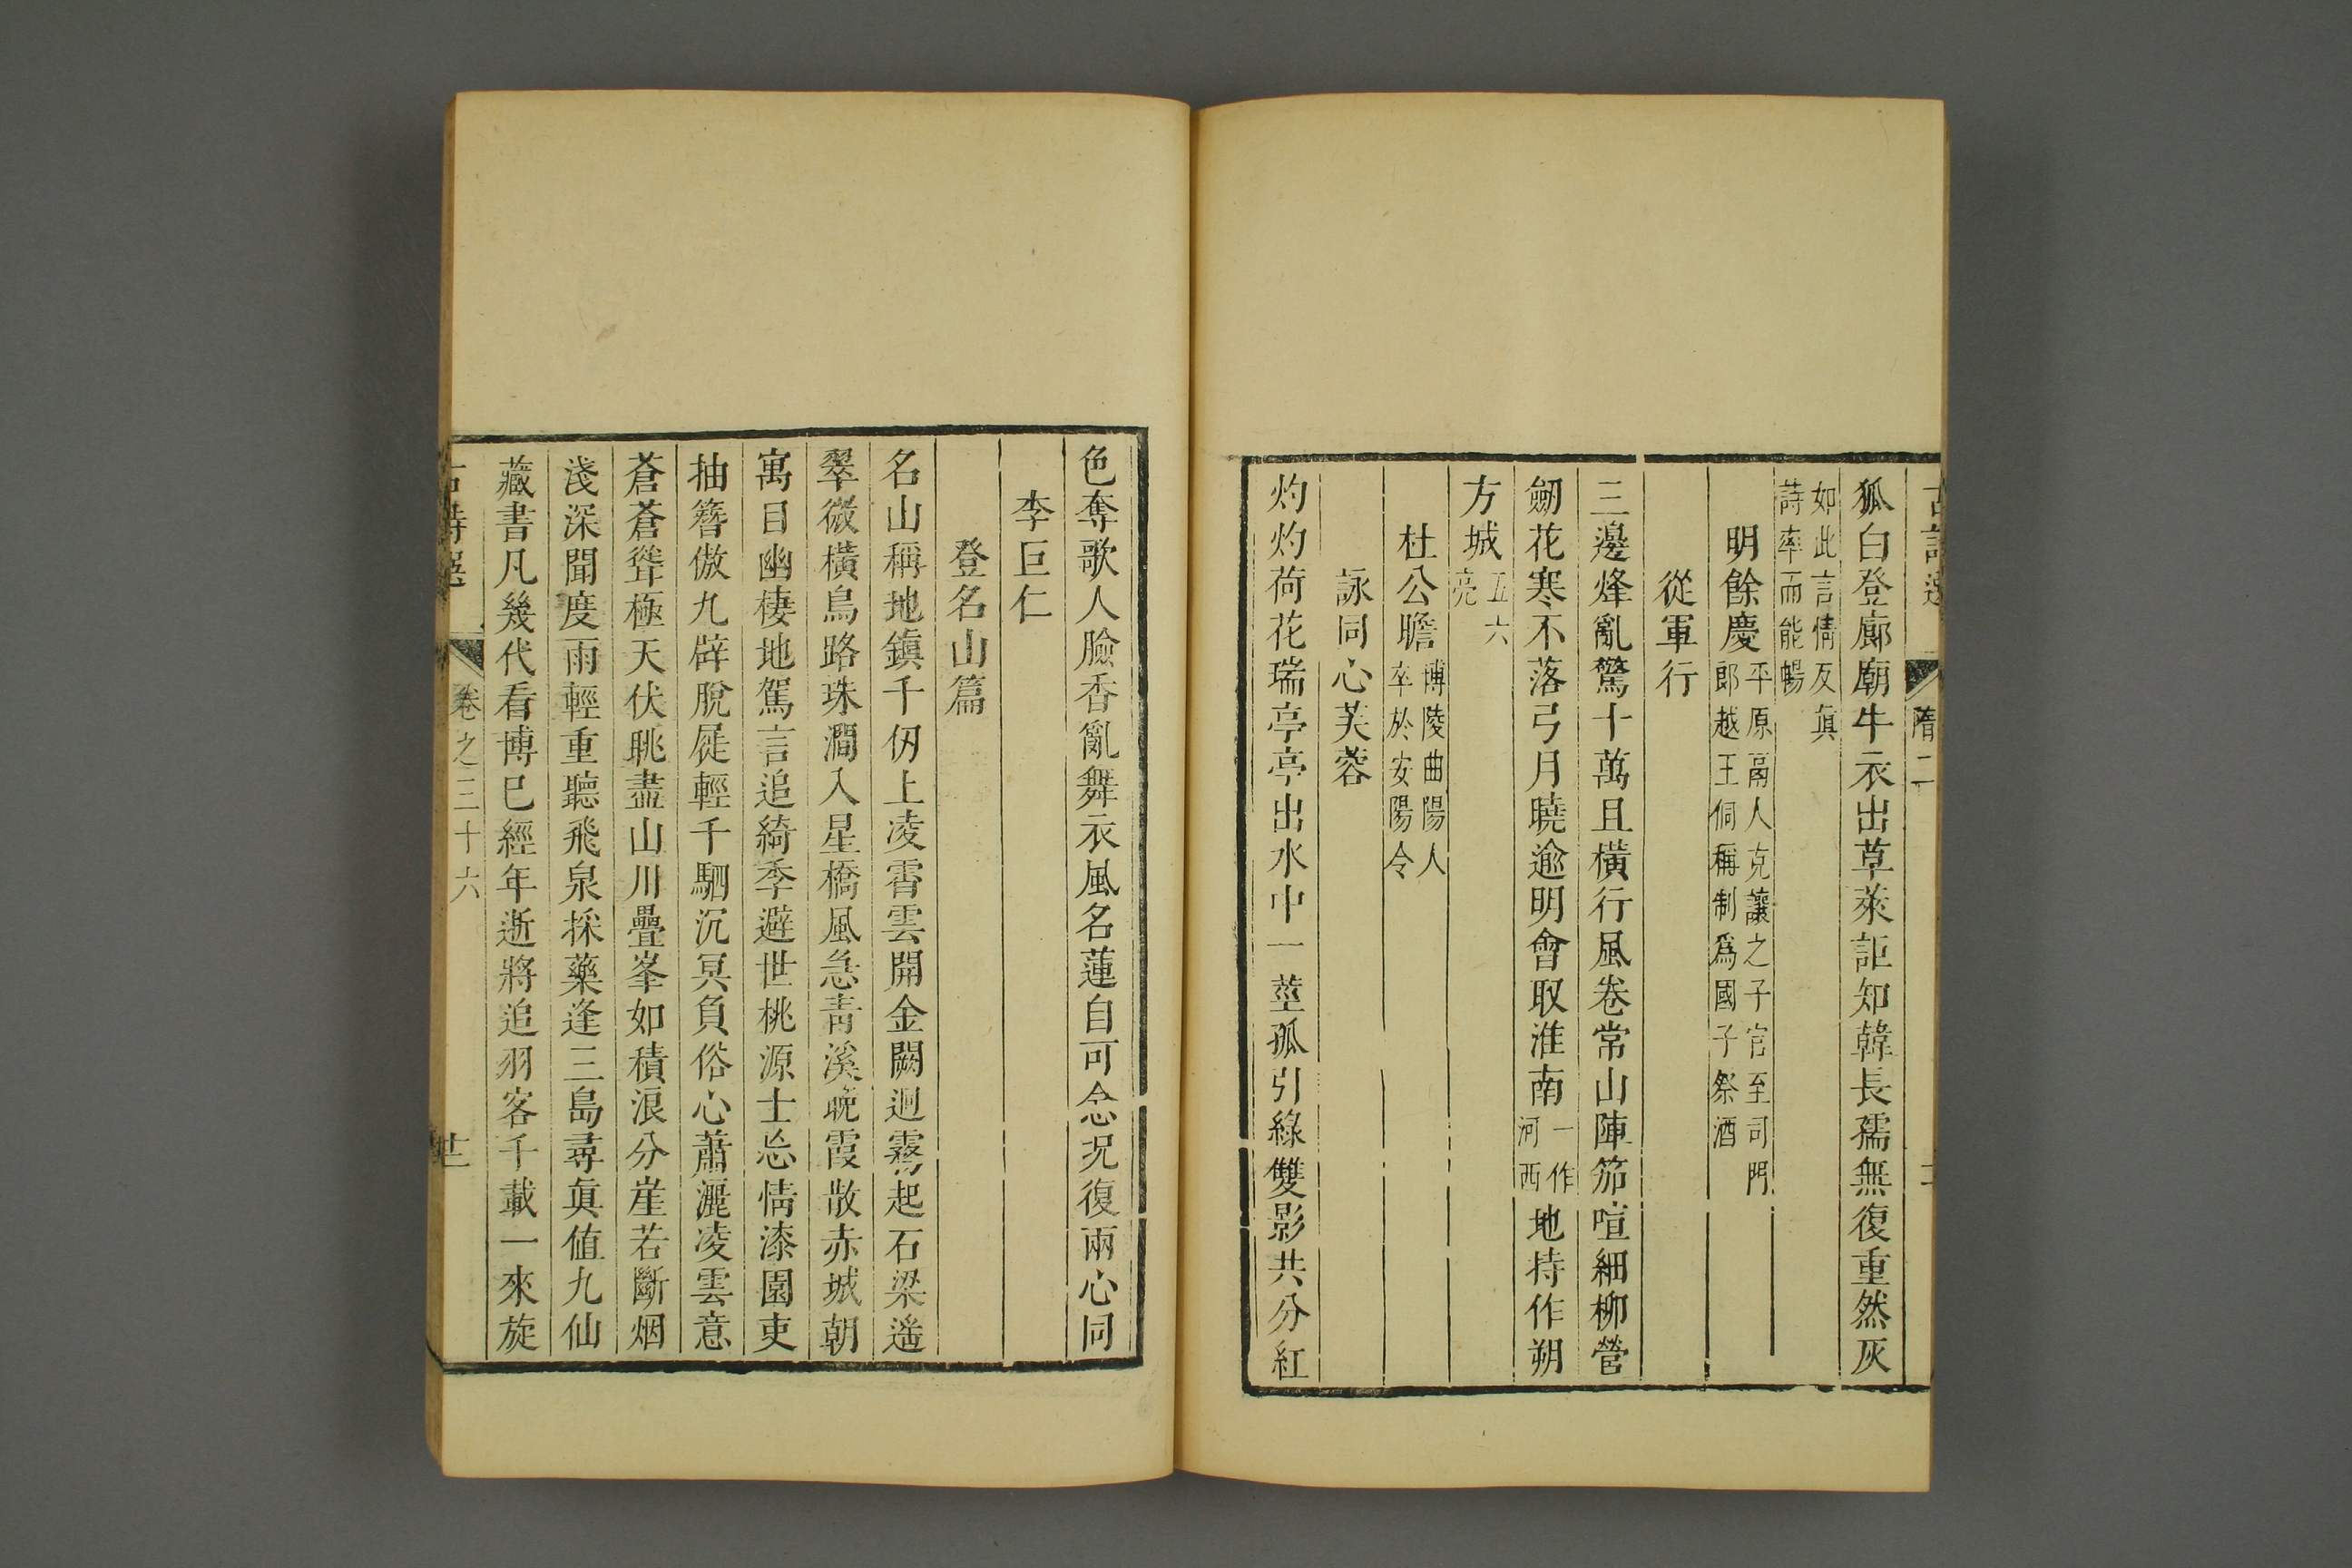 隋二
狐白登廊廟牛衣出草萊詎知韓長孺無復重然灰
如此言情反眞
詩率而能暢
明餘慶
平原鬲人克讓之子官至司門
郎越王侗稱制爲國子祭酒
從軍行
三邊烽亂驚十萬且橫行風卷常山陣笳喧細柳營
劒花寒不落弓月曉逾明會取淮南一作河西地持作朔
方城
五六
亮
杜公瞻
博陵曲陽人
卒於安陽令
詠同心芙蓉
灼灼荷花瑞亭亭出水中一莖孤引綠雙影共分紅
色奪歌人臉香亂舞衣風名蓮自可念况復兩心同
李巨仁
登名山篇
名山稱地鎭千仭上凌霄雲開金闕迴霧起石梁遙
翠微橫鳥路珠澗入星橋風急靑溪晚霞散赤城朝
寓目幽棲地駕言追綺季避世桃源士忘情漆園吏
抽簪傲九辟脫屣輕千駟沉冥負俗心蕭灑凌雲意
蒼蒼聳極天伏眺盡山川疊峯如積浪分崖若斷烟
淺深聞度雨輕重聽飛泉採藥逢三島尋眞値九仙
藏書凡幾代看博已經年逝將追羽客千載一來旋
卷之三十六